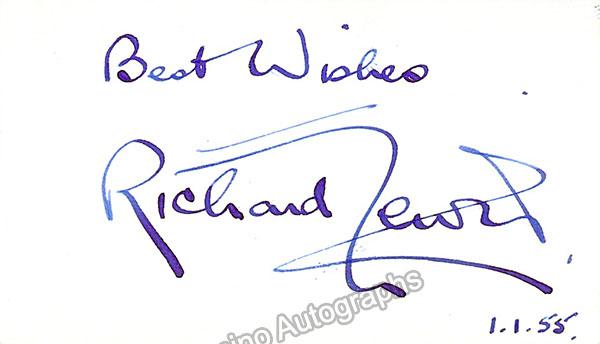 Best Wishes
Richard Lewis
ino Autographs
1.1.55.